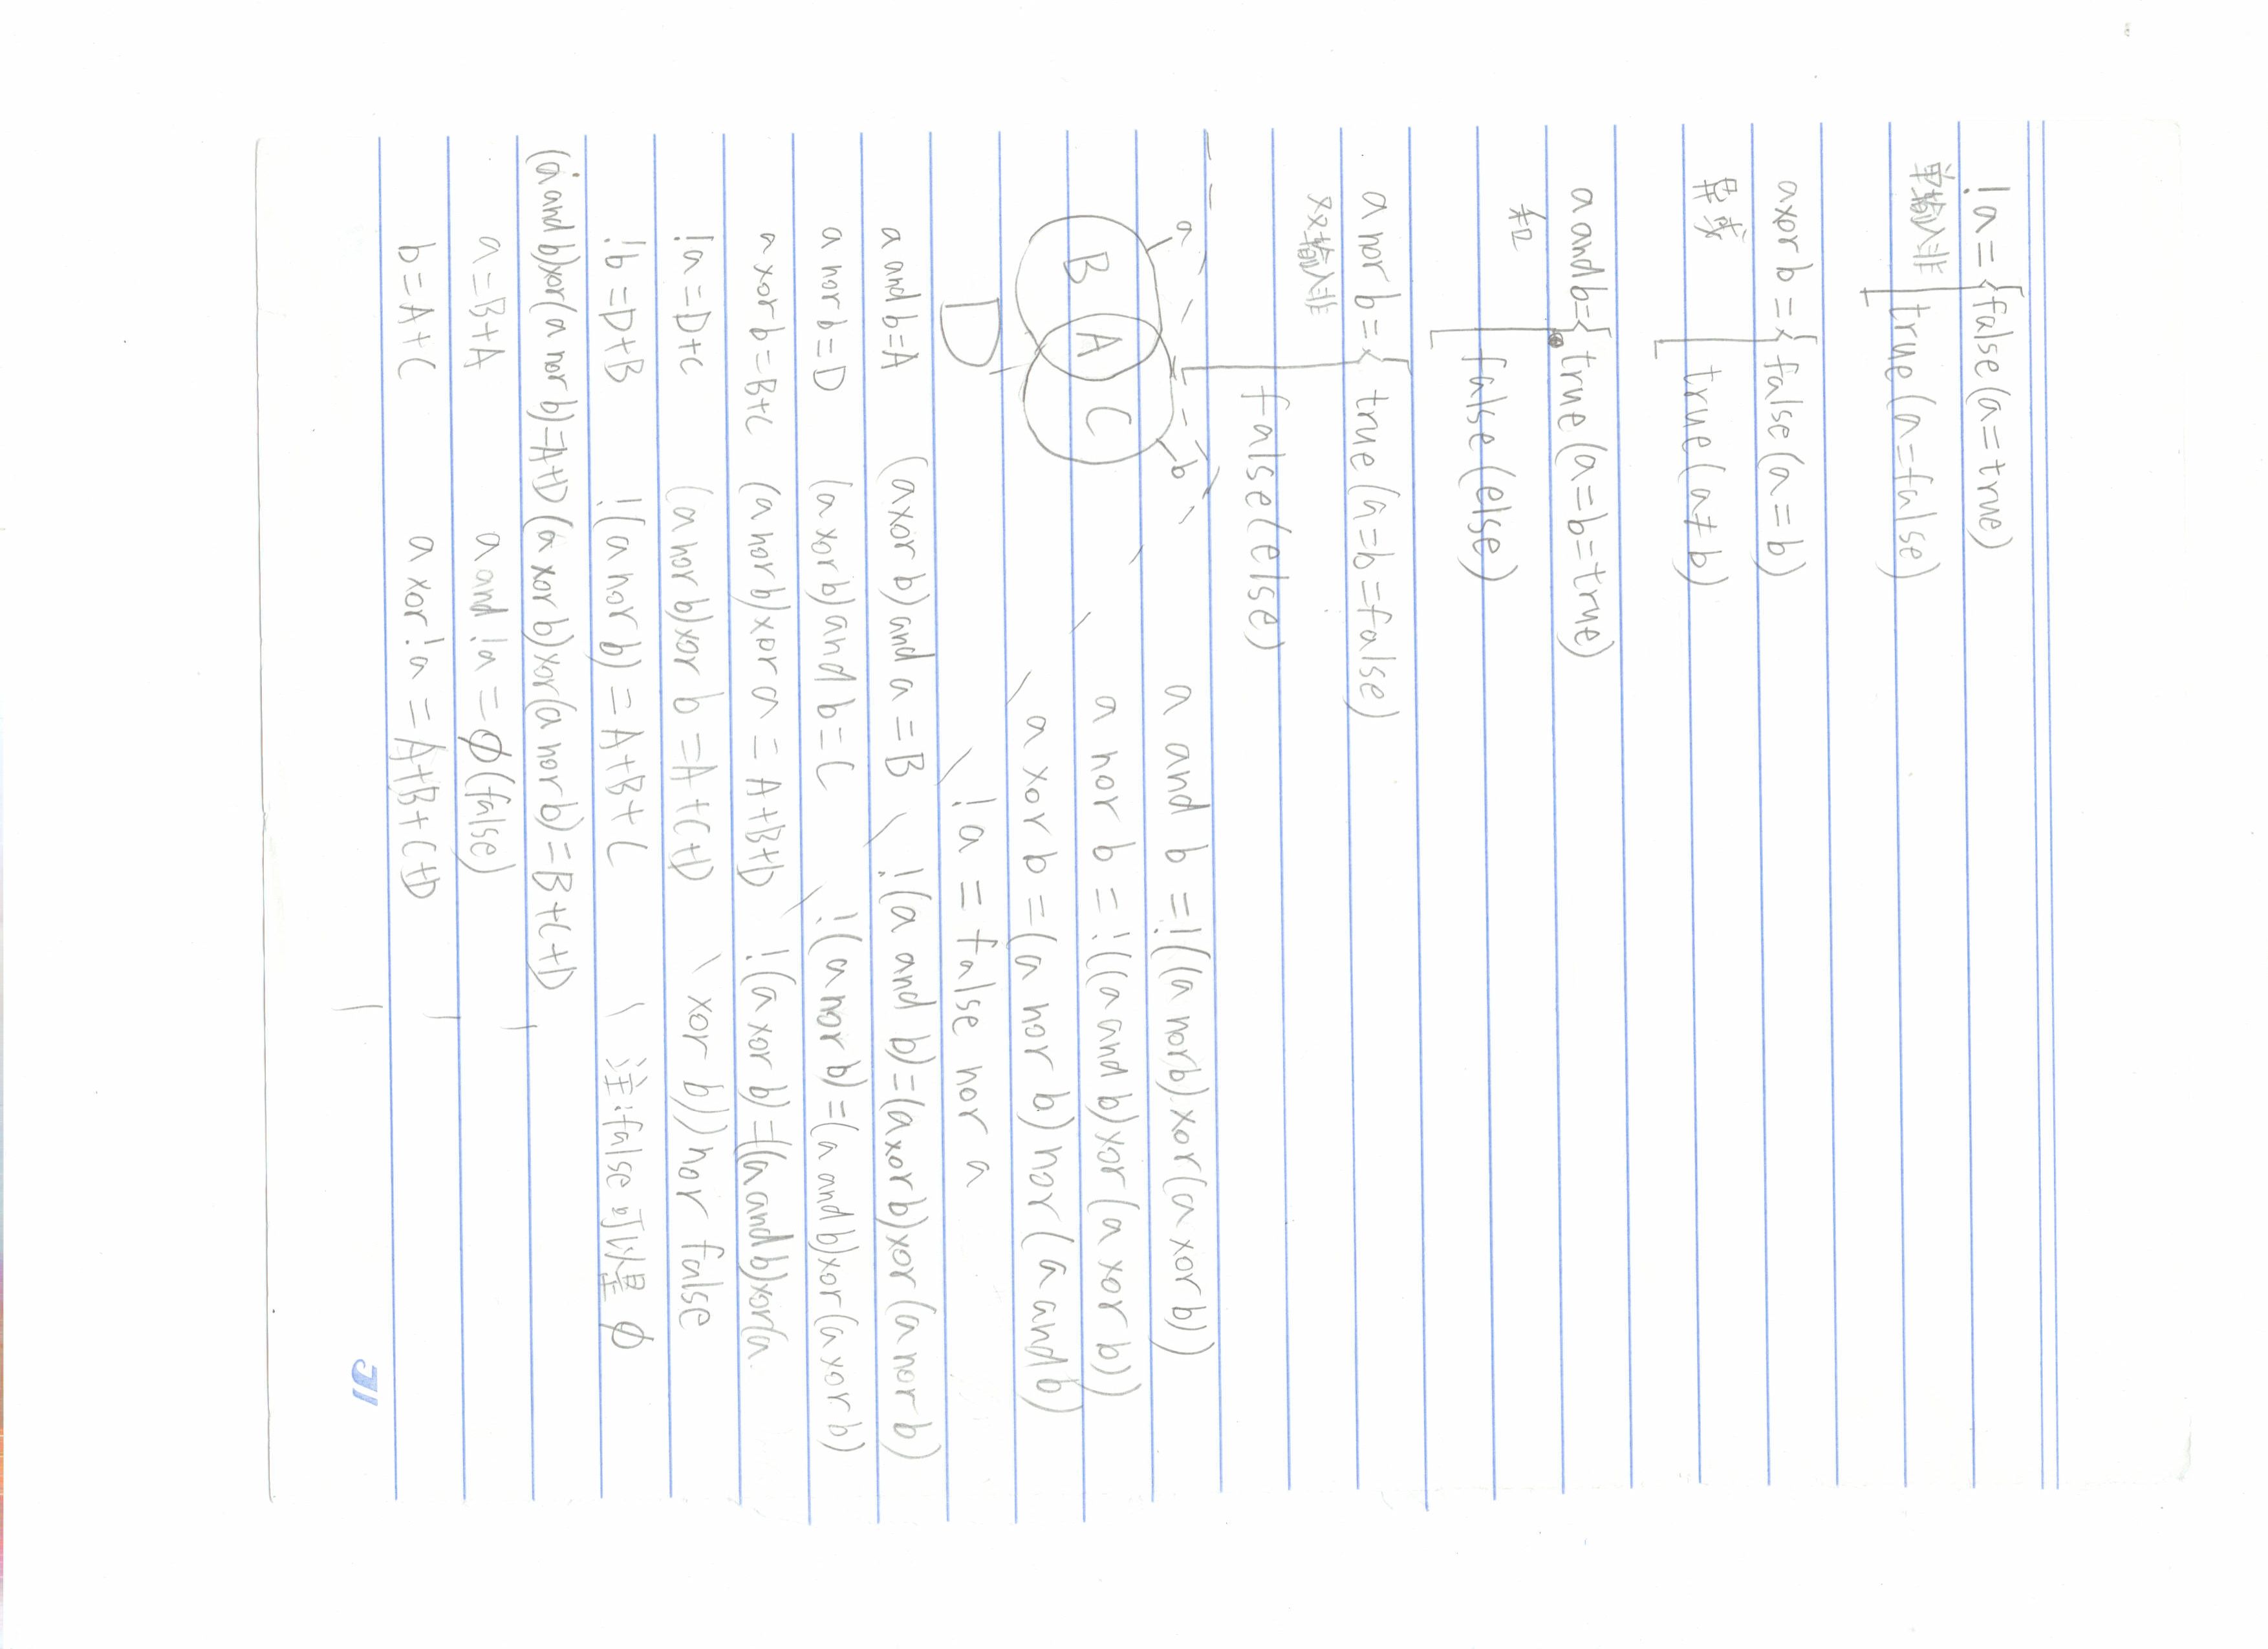 !a={false(a=true)
单输入非 true(a=false)
a xor b={false(a=b)
异或 true(a≠b)
a and b={true(a=b=true)
和 false(else)
a nor b={true(a=b=false)
双输入非 false(else)
a b
B A C
D
a and b=!((a nor b)xor(a xor b))
a nor b=!((a and b)xor(a xor b))
a xor b=(a nor b)nor(a and b)
!a=false nor a
a and b=A (a xor b)and a=B !(a and b)=(a xor b)xor(a nor b)
a nor b=D (a xor b)and b=C !(a nor b)=(a and b)xor(a xor b)
a xor b=B+C (a nor b)xor a=A+B+D !(a xor b)=((a and b)xor(a
!a=D+C (a nor b)xor b=A+C+D xor b))nor false
!b=D+B !(a nor b)=A+B+C 注:false可以是∅
(a and b)xor(a nor b)=A+D (a xor b)xor(a nor b)=B+C+D
a=B+A a and !a=∅(false)
b=A+C a xor !a=A+B+C+D